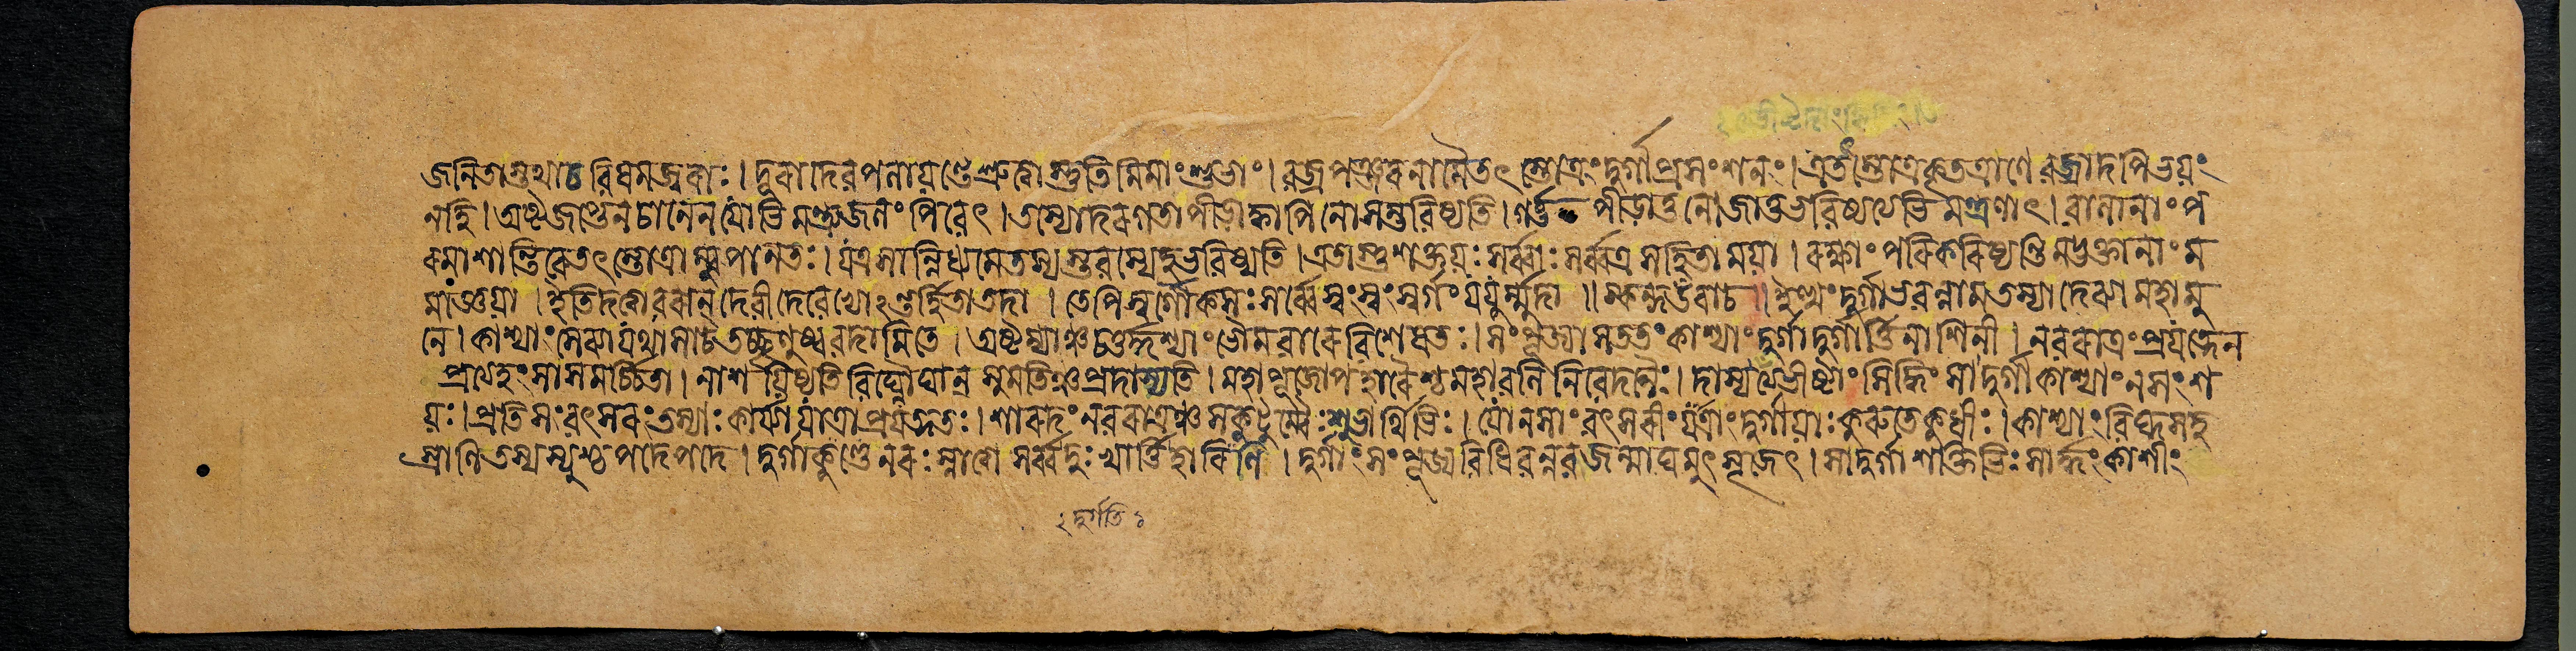 জনিতাস্তথাচ বিষমজ্বরাঃ। দূরাদেবপলায়ন্তেশ্রুত্বাস্তুতিমিমাংশুভাং। বজ্রপঞ্জরনামৈতৎস্তোত্রংদুর্গাপ্রসংশনং। এতৎস্তোত্রকৃতত্রাণে বজ্রাদপিভয়ং
নহি। অষ্টজপ্তেনচানেন যোভিমন্ত্র্যজলংপিবেৎ। তস্যোদরগতাপীড়াক্বাপিনোসম্ভবিষ্যতি। গর্ভপীড়াতুনোজাতুভবিষ্যত্যভিমন্ত্রণাৎ। বালানাংপ
রমাশান্তিরেতৎস্তোত্রাম্বুপানতঃ। যত্রসান্নিধ্যমেতস্যস্তবস্যেহভবিষ্যতি। এতাস্তুশক্তয়ঃসর্ব্বাঃসর্ব্বত্রসহিতাময়া। রক্ষাংপরিকরিষ্যন্তিমদ্ভক্তানাংম
মাজ্ঞয়া। ইতিদত্ত্বাবরান্ দেবীদেবেভ্যোঽন্তর্হিতাতদা। তেপিস্বর্গৌকসঃসর্ব্বেস্বংস্বংস্বর্গংযযুর্ম্মুদা॥ স্কন্দউবাচ॥ ইত্থংদুর্গাভবন্নামতস্যাদেব্যামহামু
নে। কাশ্যাংসেব্যাযথাসাচতচ্ছৃণুষ্ববদামিতে। অষ্টম্যাঞ্চচতুর্দ্দশ্যাংভৌমবারেবিশেষতঃ। সংপূজ্যাসততংকাশ্যাংদুর্গাদুর্গার্ত্তিনাশিনী। নবরাত্রংপ্রযত্নেন
প্রত্যহংসাসমর্চ্চিতা। নাশয়িষ্যতিবিঘ্নৌঘান্ সুমতিঞ্চপ্রদাস্যতি। মহাপূজোপহারৈশ্চমহাবলিনিবেদনৈঃ। দাস্যত্যভীষ্টাংসিদ্ধিংসাদুর্গাকাশ্যাংনসংশ
য়ঃ। প্রতিসংবৎসরংতস্যাঃকার্য্যাযাত্রাপ্রযত্নতঃ। শারদংনবরাত্রঞ্চসকুটুম্বৈঃশুভার্থিভিঃ। যোনসাংবৎসরীংযাত্রাংদুর্গায়াঃকুরুতেকুধীঃ। কাশ্যাংবিঘ্নসহ
স্রাণিতস্যস্যুশ্চপদেপদে। দুর্গাকুণ্ডেনরঃস্নাত্বাসর্ব্বদুঃখার্ত্তিহারিণীং। দুর্গাংসংপূজ্যবিধিবন্নবজন্মাঘমুৎসৃজেৎ। সাদুর্গাশক্তিভিঃসার্দ্ধংকাশীং
২ দুর্গতি ১